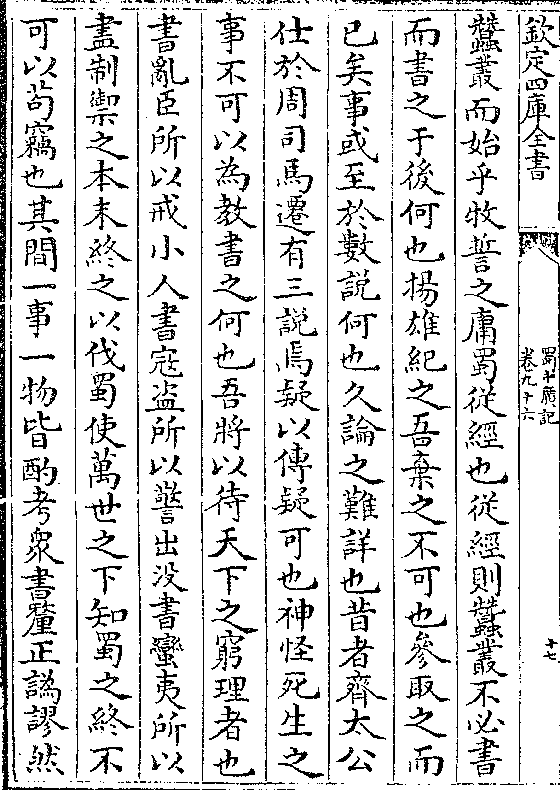 欽定四庫全書
蜀中廣記
卷九十六
十七
蠶叢而始乎牧誓之庸蜀從經也從經則蠶叢不必書
而書之于後何也揚雄紀之吾棄之不可也參取之而
已矣事或至於數說何也久論之難詳也昔者齊太公
仕於周司馬遷有三說焉疑以傳疑可也神怪死生之
事不可以為教書之何也吾將以待天下之窮理者也
書亂臣所以戒小人書寇盜所以警出没書蠻夷所以
盡制禦之本末終之以伐蜀使萬世之下知蜀之終不
可以苟竊也其間一事一物皆酌考衆書釐正譌謬然